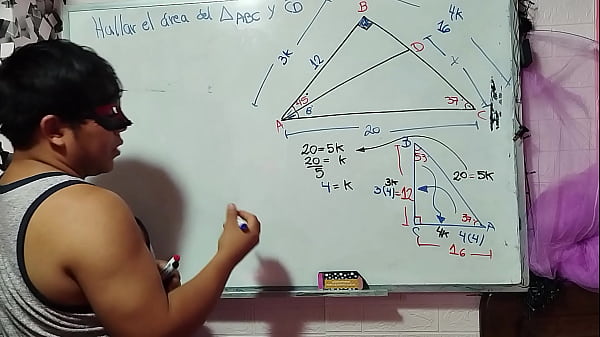 Hallar el área del △ABC y CD
B
4K
16
3K
12
D
x
45°
8°
37
A
C
20
20=5K
20/5 = K
4=K
D
53
20=5K
3K
3(4)=12
37
C
4K
4(4)
A
16